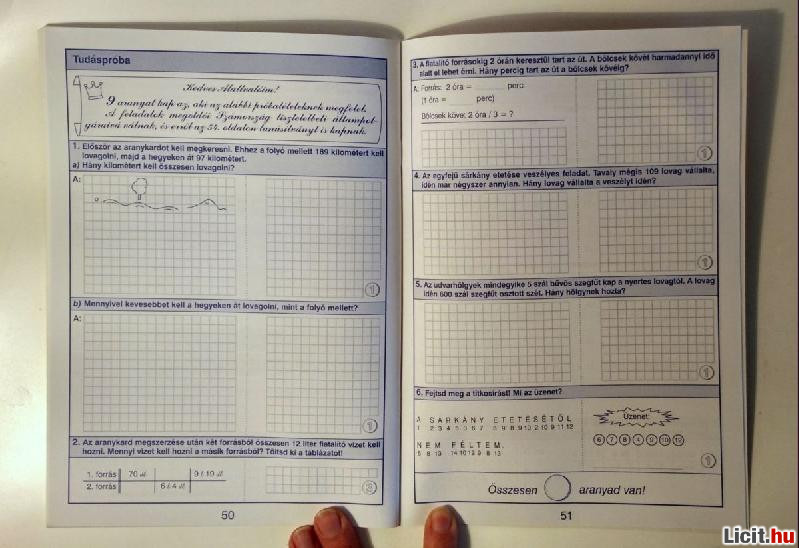 Tudáspróba
Kedves Alattvalóim!
9 aranyat kap az, aki az alábbi próbatételeknek megfelel.
A feladatok megoldói Számország tiszteletbeli állampol-
gáraivá válnak, és erről az 54. oldalon tanúsítványt is kapnak.
1. Először az aranykardot kell megkeresni. Ehhez a folyó mellett 189 kilométert kell
lovagolni, majd a hegyeken át 97 kilométert.
a) Hány kilométert kell összesen lovagolni?
A:
1
b) Mennyivel kevesebbet kell a hegyeken át lovagolni, mint a folyó mellett?
A:
1
2. Az aranykard megszerzése után két forrásból összesen 12 liter fiatalító vizet kell
hozni. Mennyi vizet kell hozni a másik forrásból? Töltsd ki a táblázatot!
1. forrás 70 dl 9 l 10 dl
2. forrás 6 l 4 dl
3
50
3. A fiatalító forrásokig 2 órán keresztül tart az út. A bölcsek kövét harmadannyi idő
alatt el lehet érni. Hány percig tart az út a bölcsek kövéig?
A: Forrás: 2 óra = perc
(1 óra = perc)
Bölcsek köve: 2 óra / 3 = ?
1
4. Az egyfejű sárkány etetése veszélyes feladat. Tavaly mégis 109 lovag vállalta,
idén már négyszer annyian. Hány lovag vállalta a veszélyt idén?
1
5. Az udvarhölgyek mindegyike 5 szál bűvös szegfűt kap a nyertes lovagtól. A lovag
idén 600 szál szegfűt osztott szét. Hány hölgynek hozta?
1
6. Fejtsd meg a titkosírást! Mi az üzenet?
A SÁRKÁNY ETETÉSÉTŐL
1 2 3 4 5 3 6 7 8 9 8 9 10 2 10 9 11 12
Üzenet:
6 7 8 4 9 10 12
NEM FÉLTEM.
6 8 13 14 10 12 9 8 13
1
Összesen aranyad van!
51
Licit.hu